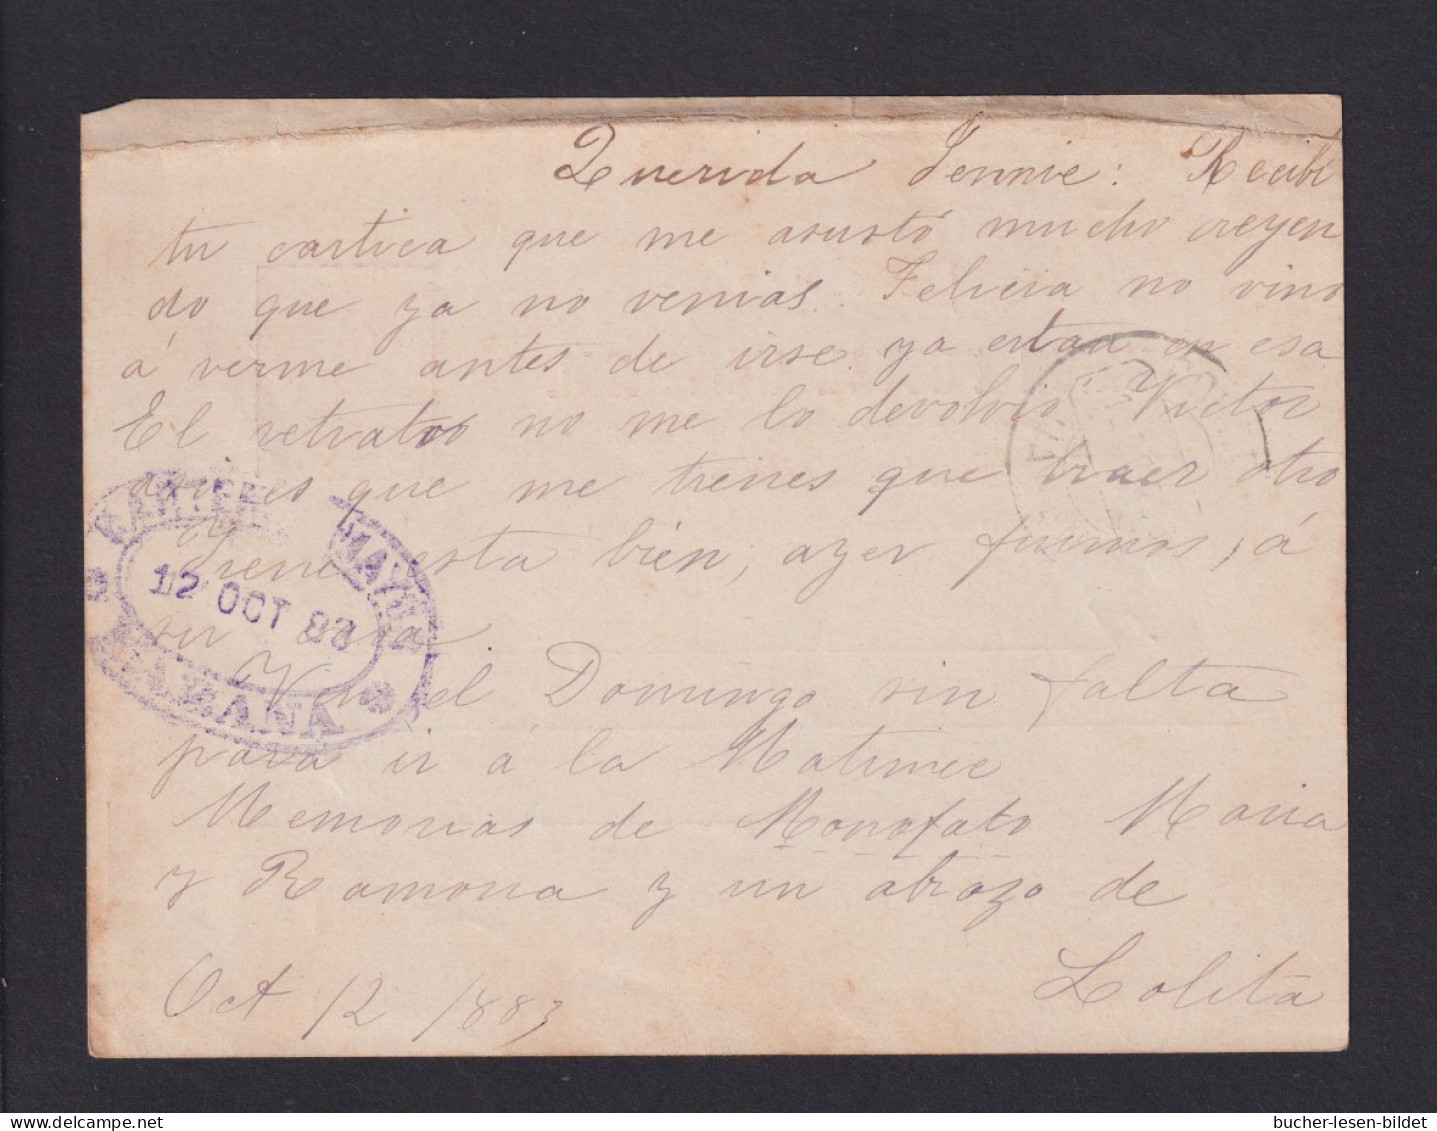 Querida Jennie: Recibí
tu cartica que me asustó mucho creyen
do que ya no venias. Felicia no vino
á verme antes de irse. ya estan en esa
El retrato no me lo devolvió Victor
asi es que me tienes que traer otro
Irene esta bien, ayer fuimos, á
su casa
Ven el Domingo sin falta
para ir á la Matinee
Memorias de Maria
y Ramona y un abrazo de
Lolita
Oct 12/1883
CARTERIA MAYOR
12 OCT 83
HABANA
bucher-lesen-bildet